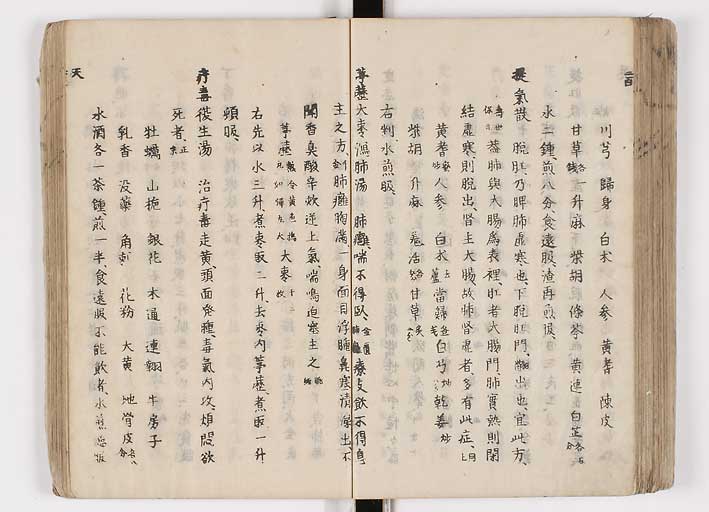 川芎 歸身 白朮 人參 黄耆 陳皮
甘草 升麻 柴胡 條芩 黄連 白芷
水二鍾煎八分食遠服渣再煎服
提氣散 脫肛乃脾肺虛寒也下脫肛門翻出也宜此方
蓋肺與大腸爲表裡肛者大腸門肺實熱則閉
結虛寒則脫出腎主大腸故肺腎虛者多有此症
黄耆 人參 白朮 當歸 白芍 乾姜
柴胡 升麻 羌活 甘草
右剉水煎服
葶藶大棗瀉肺湯 肺癰喘不得臥 療支飲不得息
主之方 肺癰胸滿一身面目浮腫鼻塞清涕出不
聞香臭酸辛欬逆上氣喘鳴迫塞主之
葶藶 熬令黄色搗丸如彈丸大 大棗
右先以水三升煮棗取二升去棗内葶藶煮取一升
頓服
疔毒復生湯 治疔毒走黄頭面發腫毒氣内攻煩悶欲
死者
牡蠣 山梔 銀花 木通 連翹 牛房子
乳香 没藥 角刺 花粉 大黄 地骨皮
水酒各一茶鍾煎一半食遠服不能飲者水煎